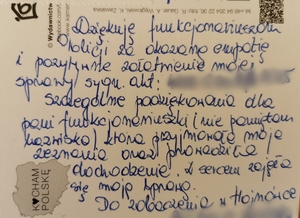 Dziękuję funkcjonariuszom
Policji za okazaną empatię
i pozytywne załatwienie mojej
sprawy sygn. akt:
Szczególne podziękowania dla
pani funkcjonariuszki (nie pamiętam
nazwiska), która przyjmowała moje
zeznania oraz prowadziła
dochodzenie. Z sercem zajęła
się moją sprawą.
Do zobaczenia w Hajnówce
KOCHAM
POLSKĘ
© Wydawnictwo